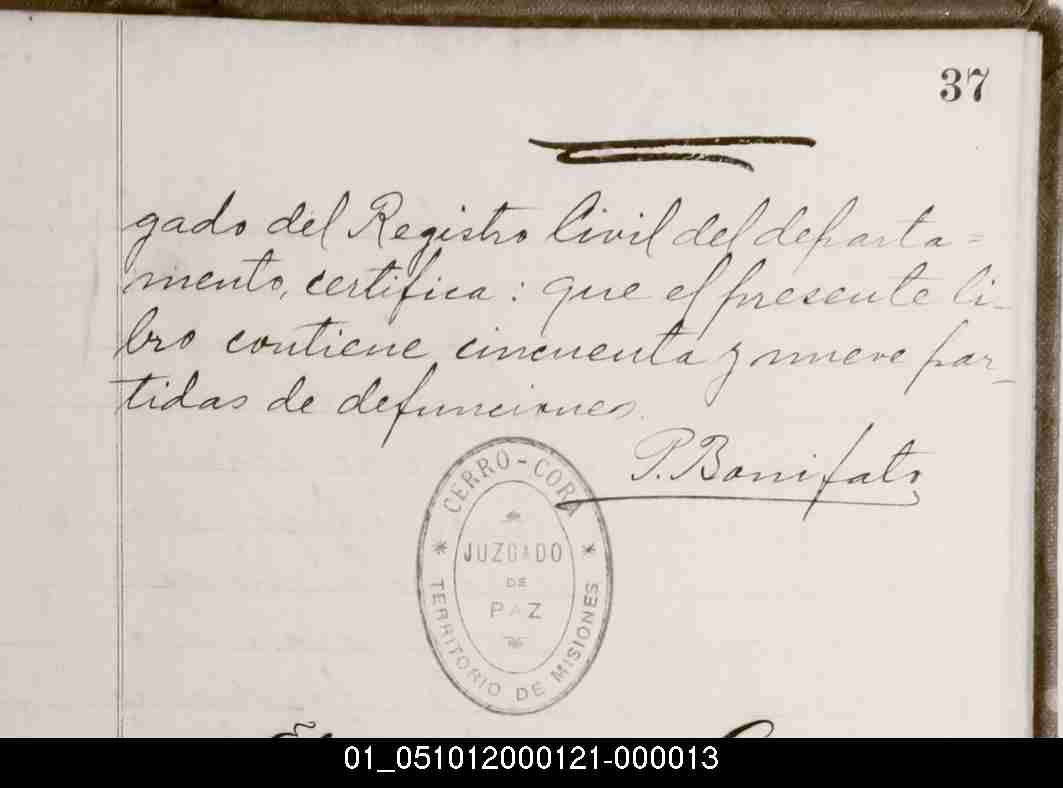 37
gado del Registro Civil del departa=
mento, certifica: que el presente li-
bro contiene cincuenta y nueve par-
tidas de defunciones.
P. Bonifato
CERRO-CORA
JUZGADO
DE
PAZ
TERRITORIO DE MISIONES
01_051012000121-000013